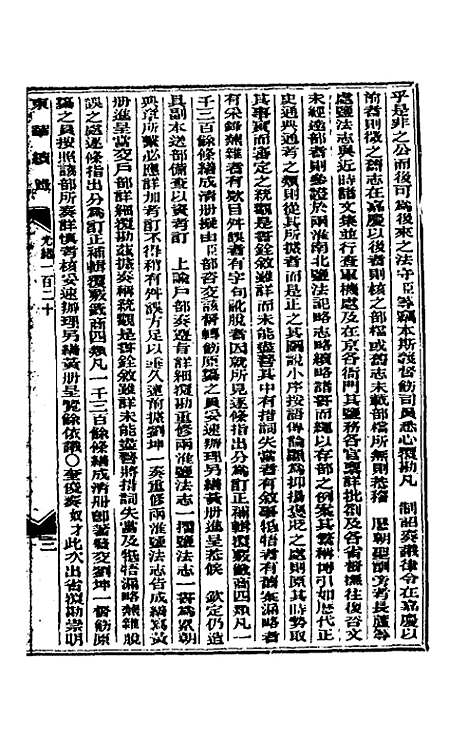 乎是非之公而後可爲後來之法守臣等竊本斯義督飭司員悉心覆勘凡 制詔奏議律令在嘉慶以
前者則徵之舊志在嘉慶以後者則核之部檔或舊志未載部檔所無則恭稽 歷朝聖訓旁考長蘆等
處鹽法志與近時諸文集並行查軍機處及在京各衙門其鹽務各官稟詳批劄及各省督撫往復咨文
未經達部者則參證於兩淮南北鹽法記略志略續略諸書而總以存部之例案其繁稱博引如歷代正
史通典通考之類則從其所據者而是正之其圖說小序按語傳論願爲抑揚褒貶之處則原其時勢取
其事實而審定之統觀是書銓敘雖詳而未能盡善其中有措詞失當者有敘事牴牾者有舊案漏略者
有采錄蕪雜者有款目舛誤者有字句訛脫者因就所見逐條指出分爲訂正補輯覆覈籤商四類凡一
千三百餘條繕成清册擬由臣部咨交該督轉飭原纂之員妥速辦理另繕黃册進呈恭候 欽定仍造
具副本送部備查以資考訂 上諭戶部奏遵旨詳細覆勘重修兩淮鹽法志一摺鹽法志一書爲累朝
典章所繫必應詳加考訂不得稍有舛誤方足以垂久遠前據劉坤一奏重修兩淮鹽法志告成繕寫黃
册進呈當交戶部詳細覆勘茲據奏稱統觀是書銓敘雖詳未能盡善將措詞失當及牴牾漏略蕪雜脫
誤之處逐條指出分爲訂正補輯覆覈籤商四類凡一千三百餘條繕成清册卽著發交劉坤一督飭原
纂之員按照該部所奏詳愼考核妥速辦理另繕黃册呈覽餘依議○奎俊奏奴才此次出省覆勘崇明
東華續錄 光緒一百二十 二